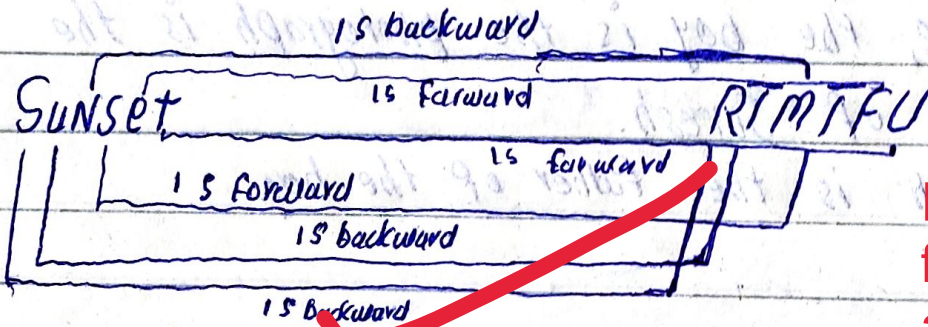 1 S backward
1S farward
Sunset RTMTFU
1S farward
1 S forward
1S backward
1 S Backward